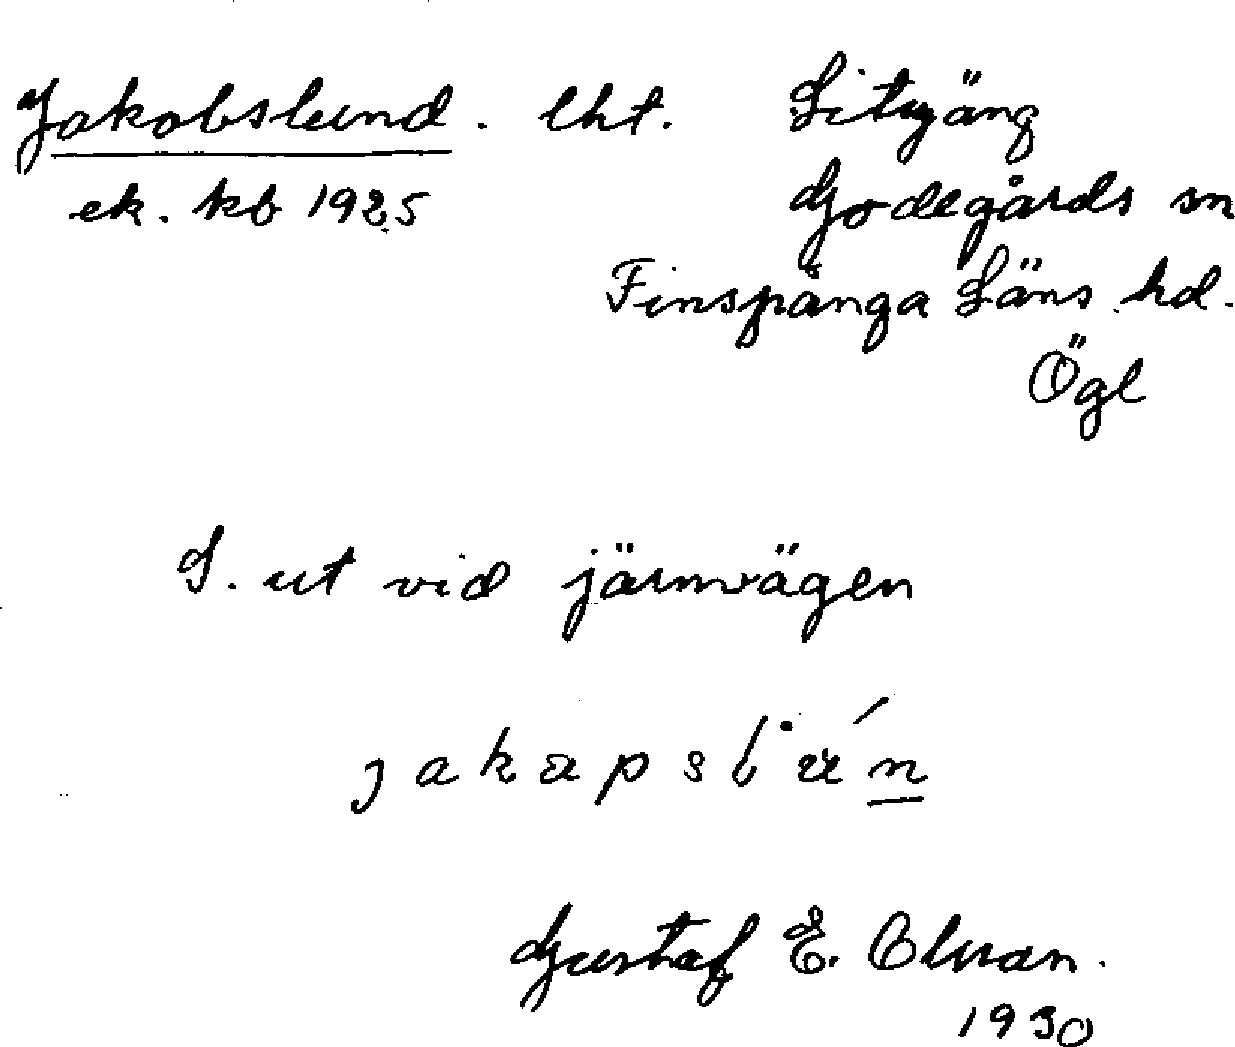 Jakobslund. lht. Sityäng
ek. kb 1925 Godegårds sn
Finspånga Läns hd.
Ögl
S. ut vid järnvägen
jakapslún
Gustaf E. Olson.
1930